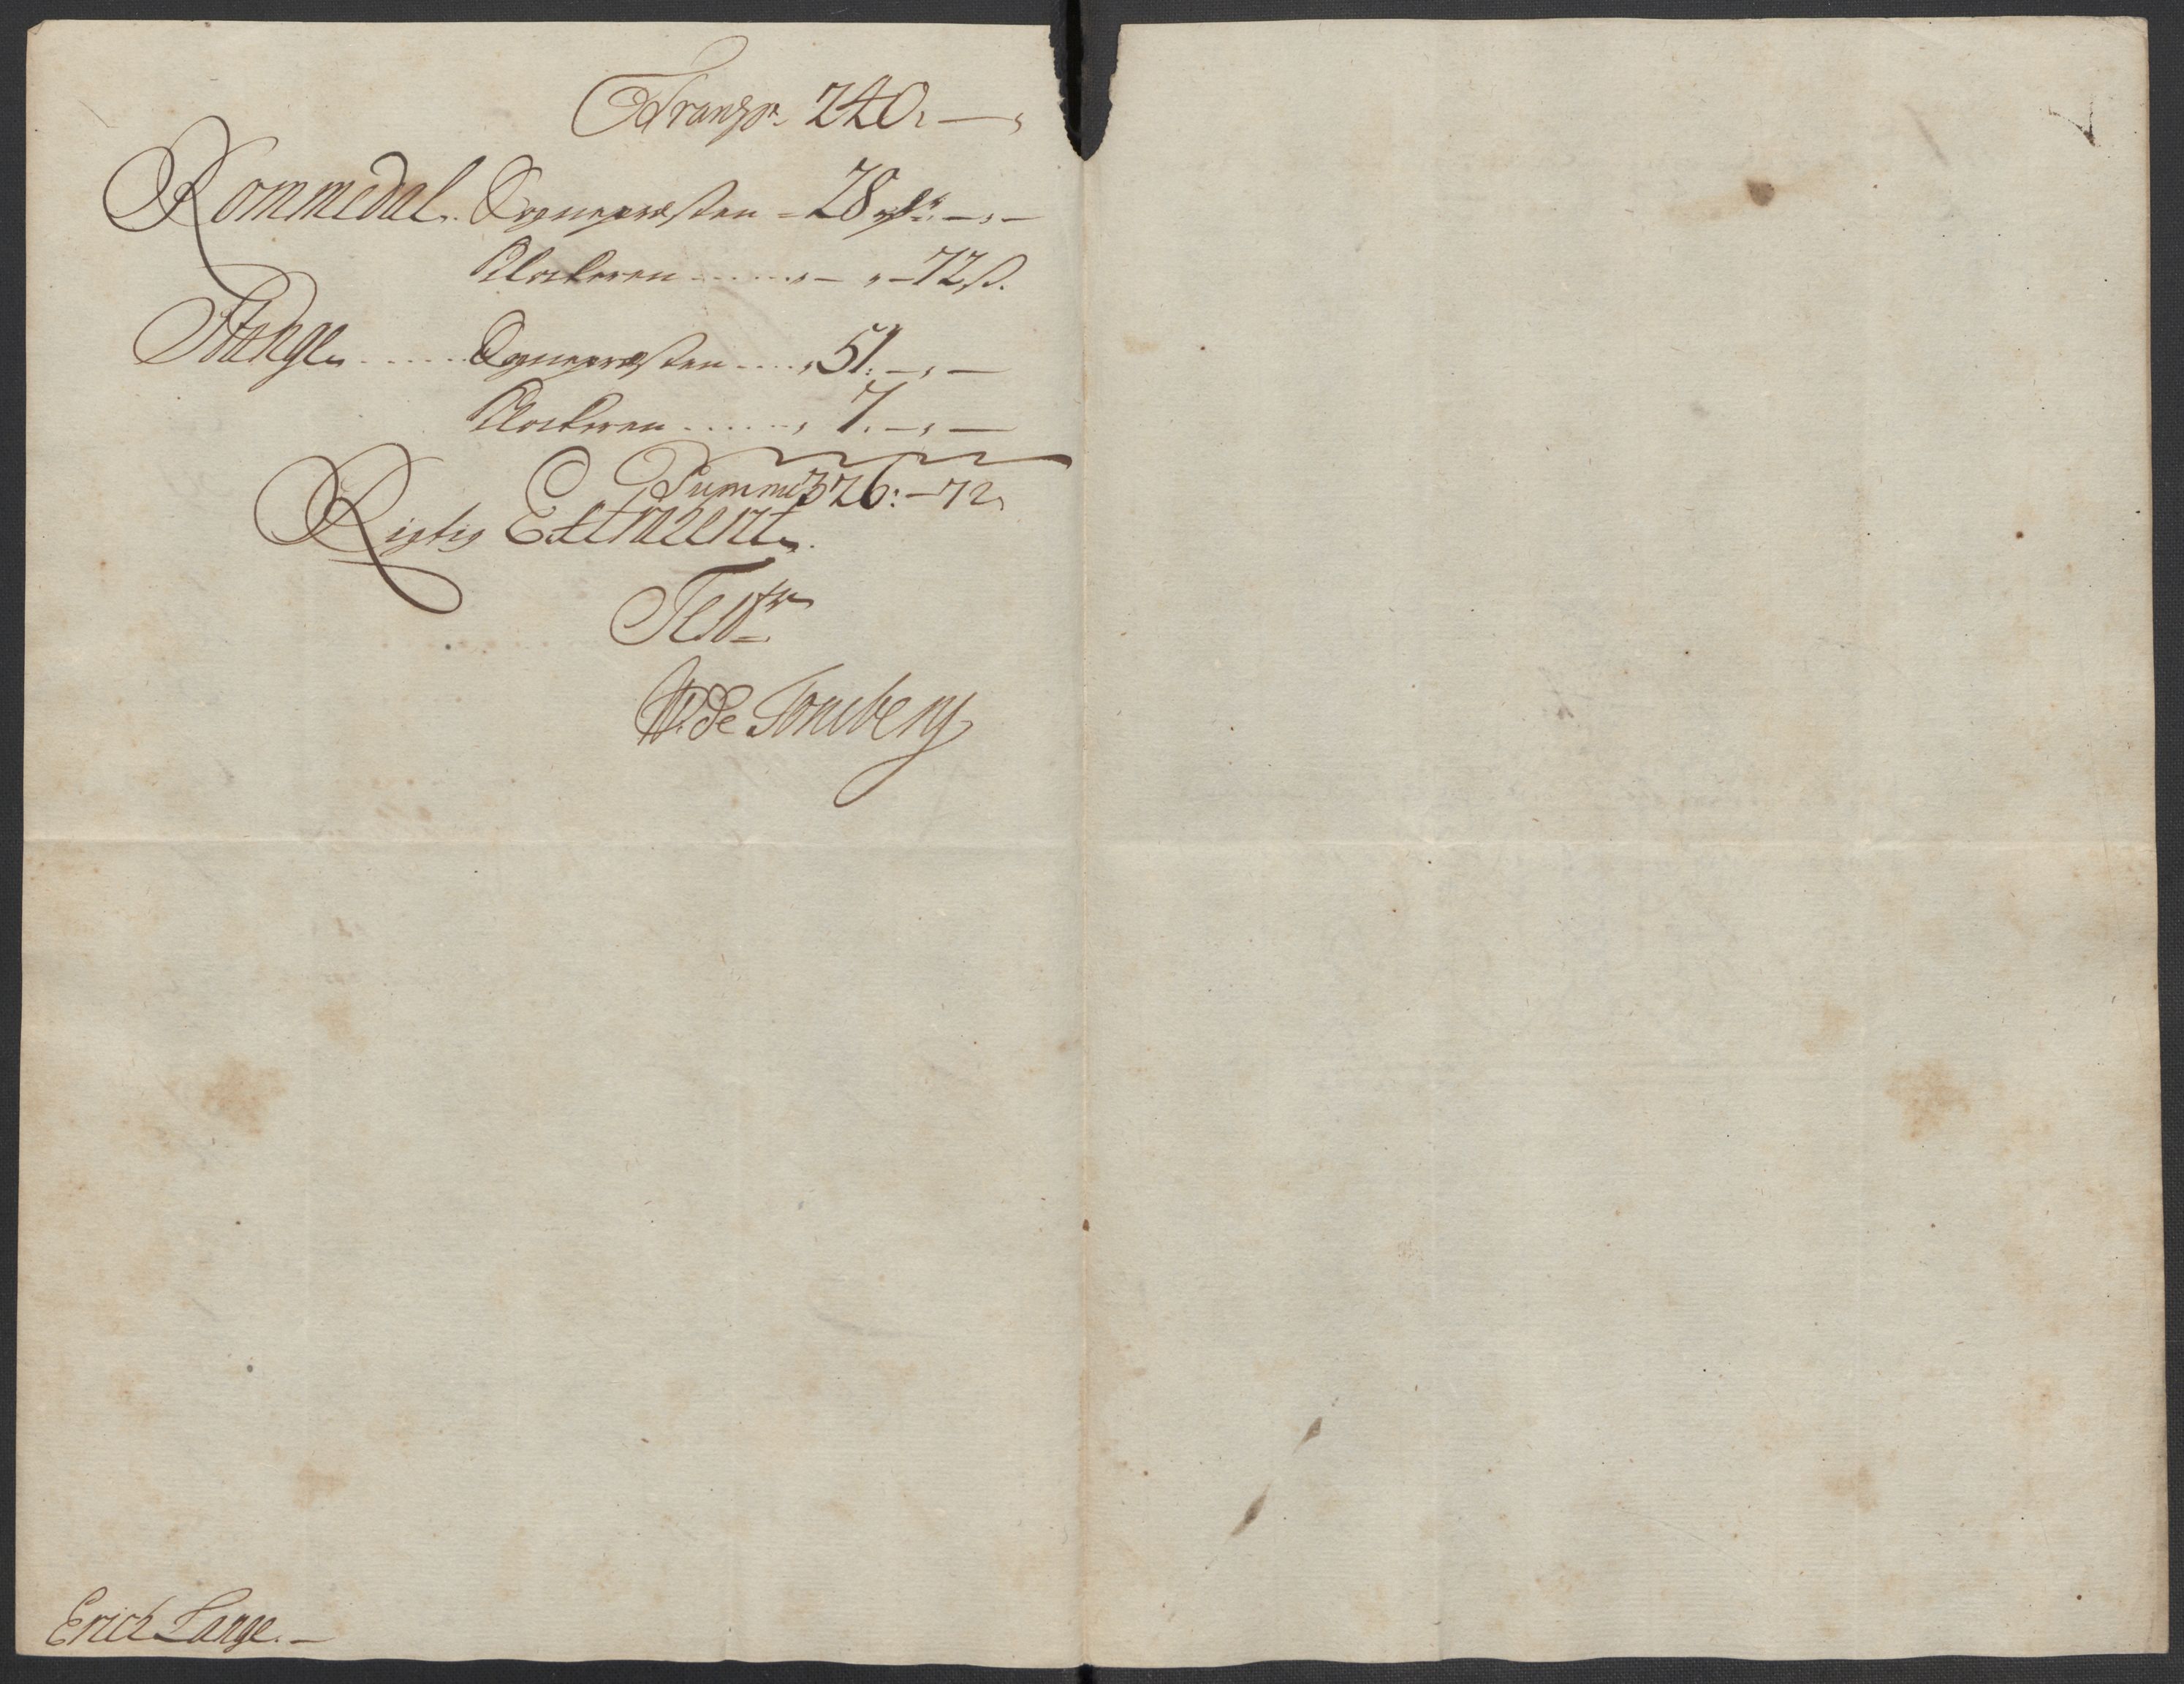 Transp. 240. — ,
Rommedal. Sognepræsten - 28 rdr. — , —
Klockeren ....... , — , — 72 ß.
Stange ...... Sognepræsten ...., 51. — , —
Klockeren ......, 7. — , —
Summa 326: — 72.
Rigtig Extract
Test:
W. de Tonsberg
Erich Lange. —